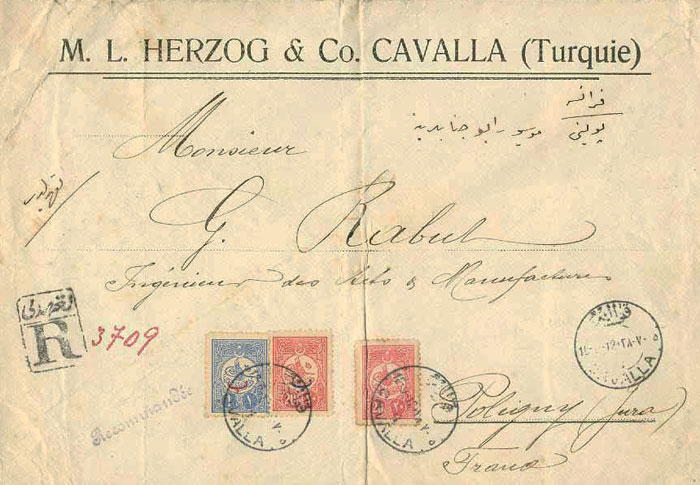 M. L. HERZOG & Co. CAVALLA (Turquie)
فرانسه
پولینی موسیو رابو جنابلرینه
Monsieur
G. Rabut
Ingénieur des Arts & Manufactures
R
3709
Recommandée
CAVALLA
CAVALLA
CAVALLA
Poligny (Jura)
France